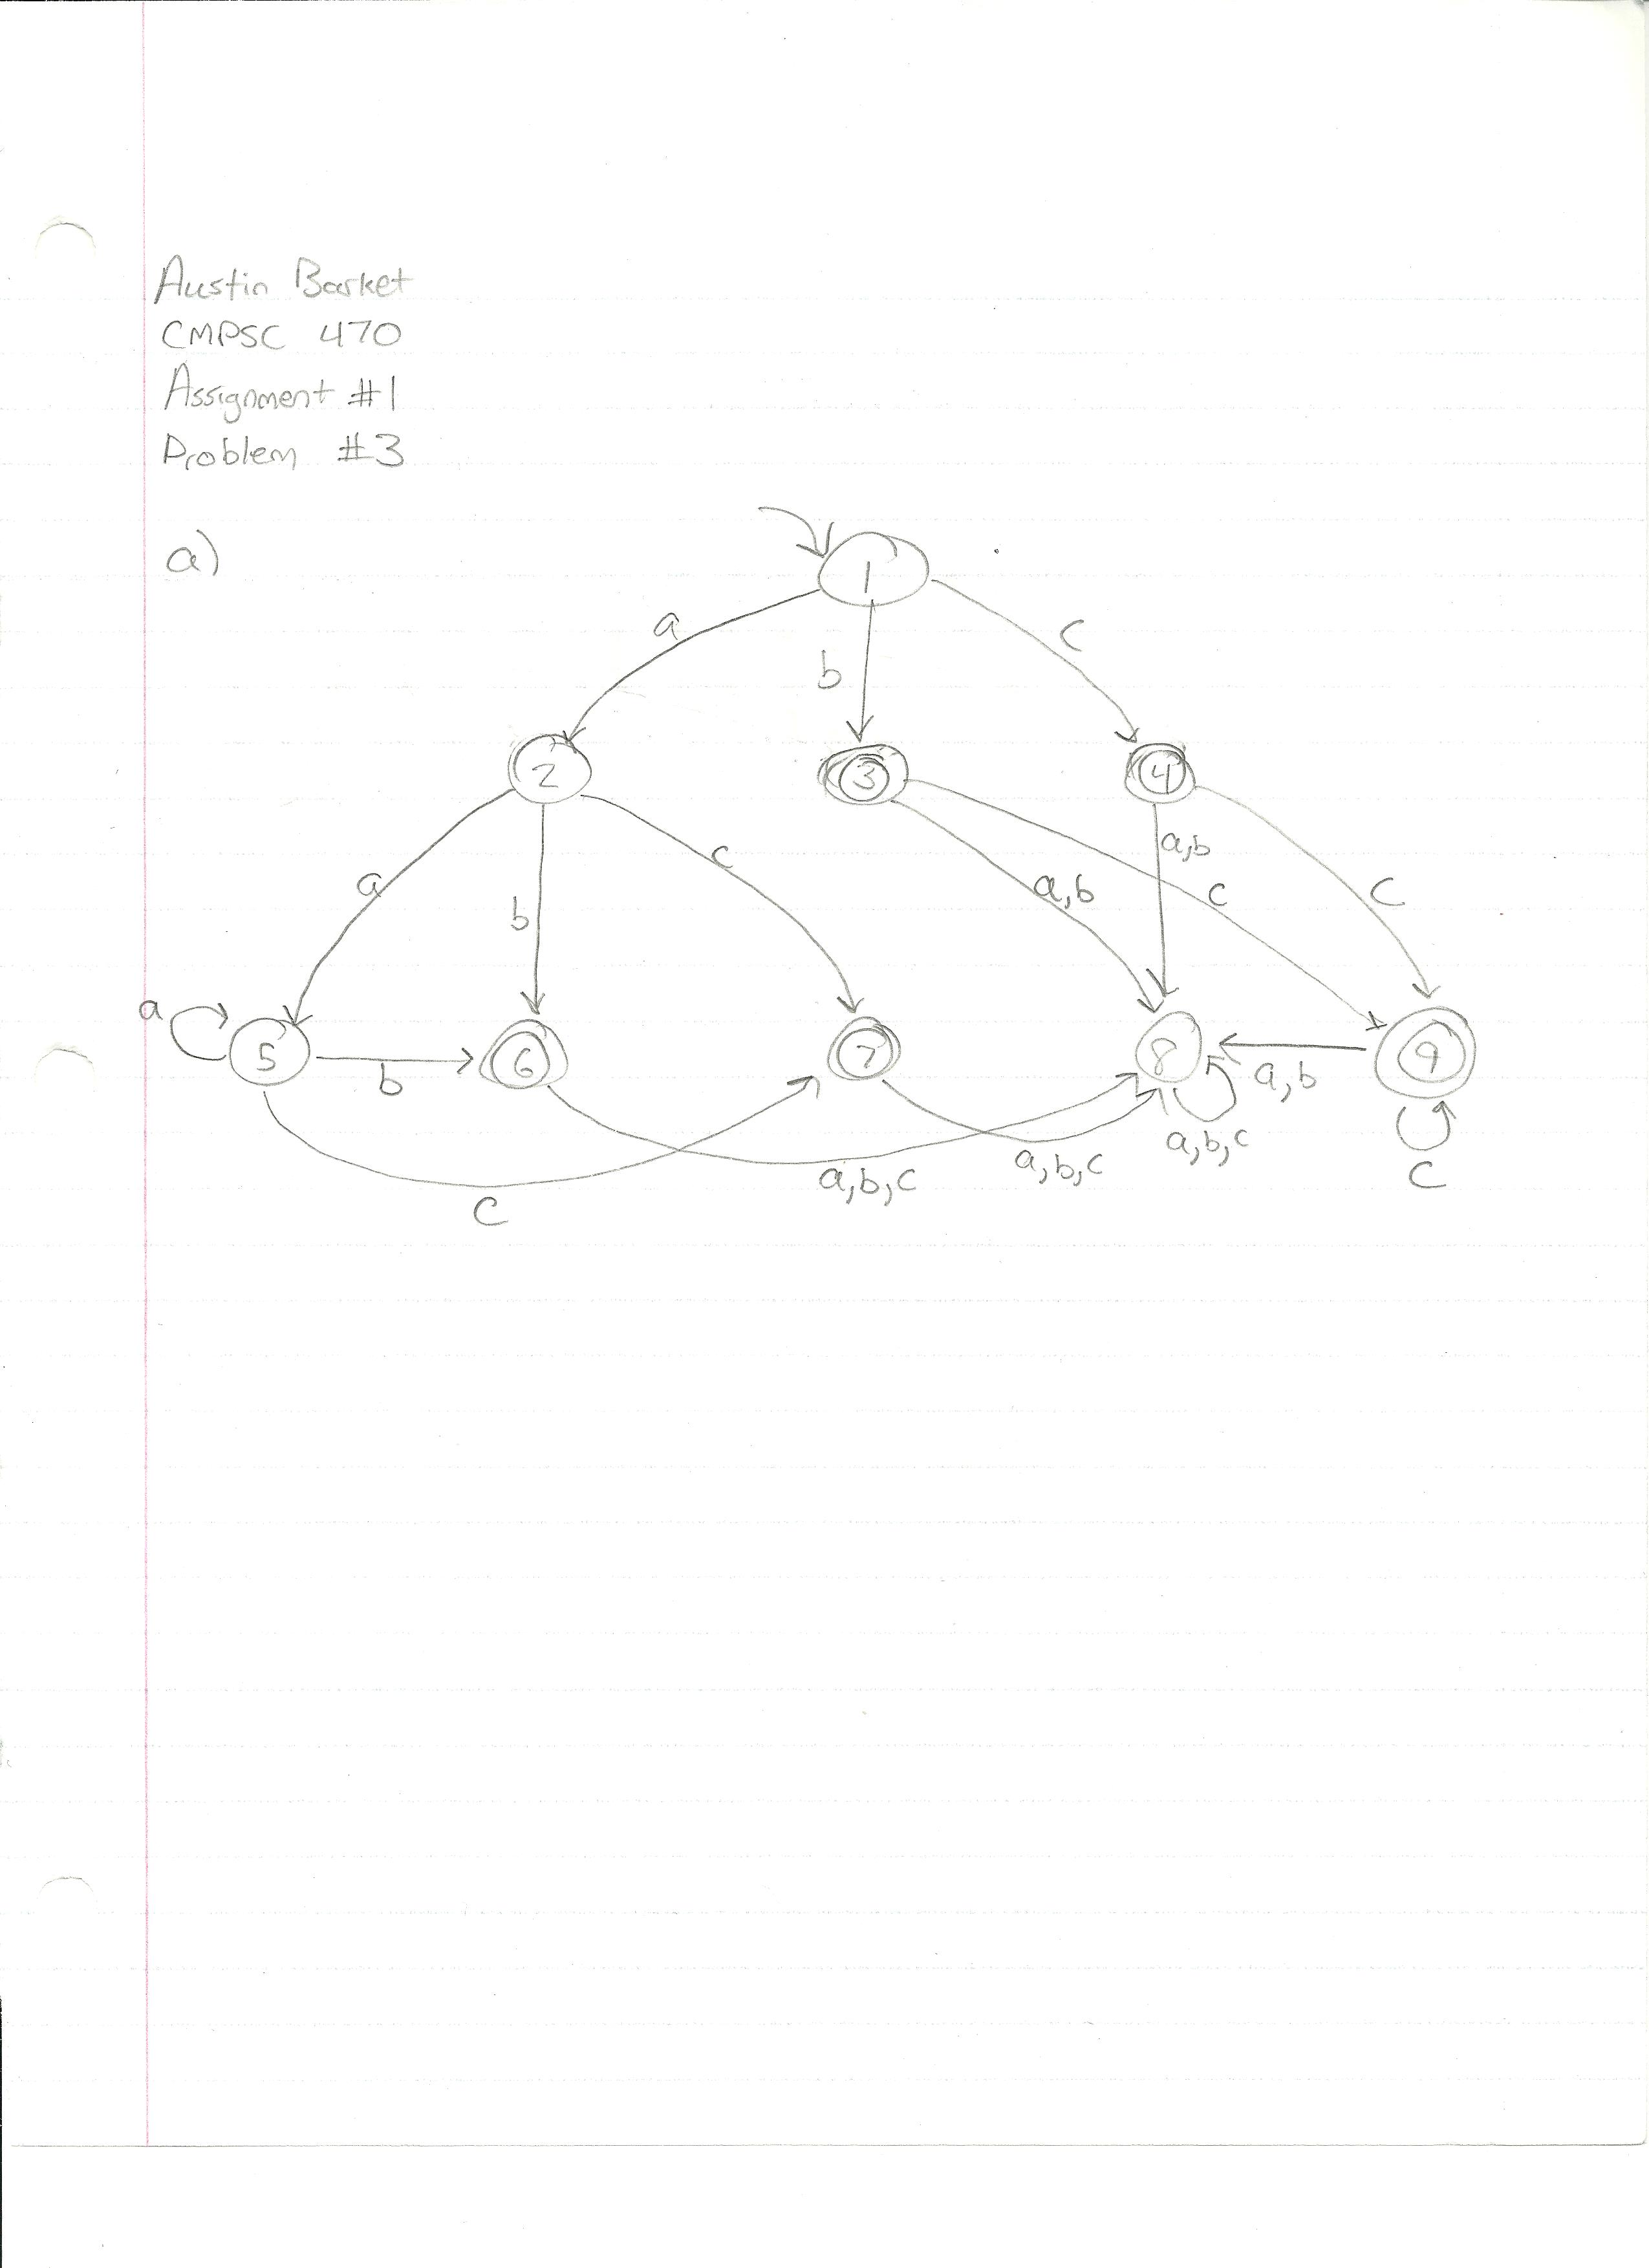 Austin Barket
CMPSC 470
Assignment #1
Problem #3
a)
1
a
b
c
2
3
4
a
b
c
a,b
c
a,b
c
a
5
b
6
7
8
a,b
9
c
a,b,c
a,b,c
a,b,c
c